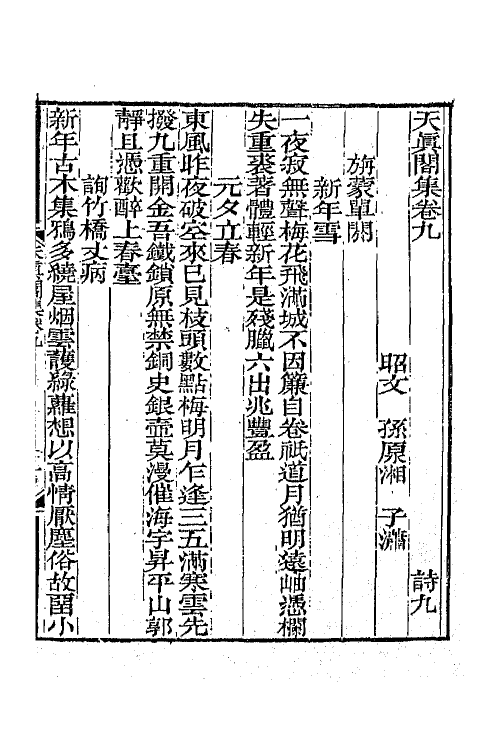 天眞閣集卷九 詩九
昭文 孫原湘 子瀟
旃蒙單閼
新年雪
一夜寂無聲梅花飛滿城不因簾自卷祇道月猶明遠岫憑欄
失重裘著體輕新年是殘臘六出兆豐盈
元夕立春
東風昨夜破空來已見枝頭數點梅明月乍逢三五滿寒雲先
撥九重開金吾鐵鎖原無禁銅史銀壺莫漫催海宇昇平山郭
靜且憑歡醉上春臺
詢竹橋丈病
新年古木集鴉多繞屋烟雲護綠蘿想以高情厭塵俗故留小